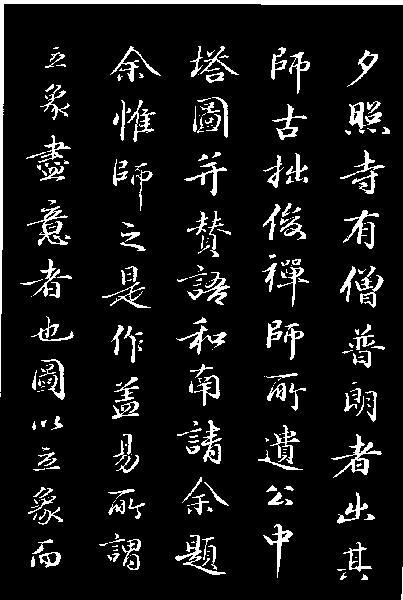 夕照寺有僧普朗者出其
師古拙俊禪師所遺公中
塔圖并贊語和南請余題
余惟師之是作蓋易所謂
立象盡意者也圖以立象而